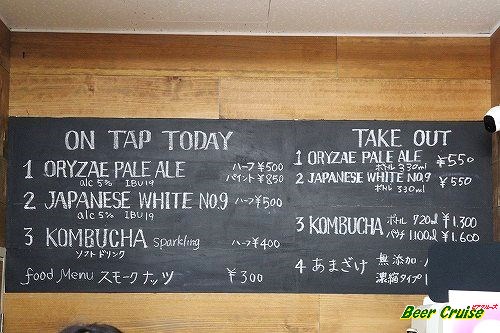 ON TAP TODAY
1 ORYZAE PALE ALE ハーフ ¥500
alc 5% IBU19 パイント ¥850
2 JAPANESE WHITE NO.9 ハーフ ¥500
alc 5% IBU19
3 KOMBUCHA sparkling ハーフ ¥400
ソフトドリンク
food Menu スモークナッツ ¥300
TAKE OUT
1 ORYZAE PALE ALE ¥550
ボトル 330ml
2 JAPANESE WHITE NO.9 ¥550
ボトル 330ml
3 KOMBUCHA ボトル 720ml ¥1,300
パウチ 1100ml ¥1,600
4 あまざけ 無添加
濃縮タイプ
ビアクルーズ
Beer Cruise